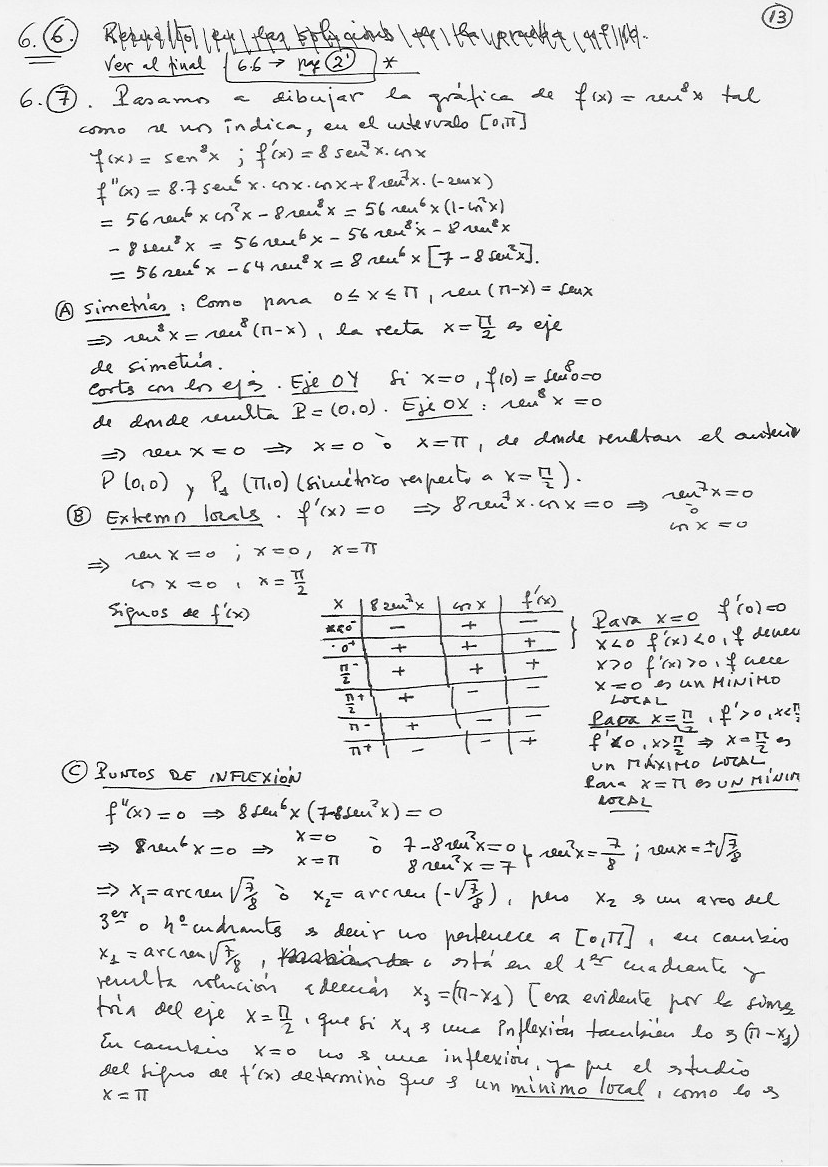 13
6. 6. Resuelto en las soluciones de la prueba
Ver al final 6.6 → pag 2' *
6. 7. Pasamos a dibujar la gráfica de f(x) = sen⁸x tal
como se nos indica, en el intervalo [0,π]
f(x) = sen⁸x ; f'(x) = 8 sen⁷x · cos x
f''(x) = 8.7 sen⁶x · cos x · cos x + 8 sen⁷x · (-sen x)
= 56 sen⁶x cos²x - 8 sen⁸x = 56 sen⁶x (1-cos²x)
- 8 sen⁸x = 56 sen⁶x - 56 sen⁸x - 8 sen⁸x
= 56 sen⁶x - 64 sen⁸x = 8 sen⁶x [7 - 8 sen²x].
A Simetrías : Como para 0 ≤ x ≤ π, sen (π-x) = sen x
⇒ sen⁸x = sen⁸(π-x), la recta x = π/2 es eje
de simetría.
Corts con los ejes. Eje OY Si x=0, f(0) = sen⁸0=0
de donde resulta P = (0,0). Eje OX : sen⁸x = 0
⇒ sen x = 0 ⇒ x = 0 ò x = π, de donde resultan el anterior
P (0,0) y P₁ (π,0) (simétrico respecto a x = π/2).
B Extremos locales. f'(x) = 0 ⇒ 8 sen⁷x · cos x = 0 ⇒ sen⁷x = 0
ò
cos x = 0
⇒ sen x = 0 ; x = 0, x = π
cos x = 0, x = π/2
Signos de f'(x)
x 8 sen⁷x cos x f'(x)
0⁻ - + -
0⁺ + + +
π/2⁻ + + +
π/2⁺ + - -
π⁻ + - -
π⁺ - - +
Para x=0 f'(0)=0
x<0 f'(x)<0, f decrece
x>0 f'(x)>0, f crece
x=0 es un MÍNIMO
LOCAL
Para x=π/2, f'>0, x<π/2
f'<0, x>π/2 ⇒ x=π/2 es
UN MÁXIMO LOCAL
Para x=π es UN MÍNIM
LOCAL
C PUNTOS DE INFLEXIÓN
f''(x) = 0 ⇒ 8 sen⁶x (7-8 sen²x) = 0
⇒ 8 sen⁶x = 0 ⇒ x=0 x=π ò 7-8 sen²x=0 8 sen²x = 7 } sen²x = 7/8 ; sen x = ±√7/8
⇒ x₁ = arc sen √7/8 ò x₂ = arc sen (-√7/8), pero x₂ es un arco del
3er o 4º cuadrantes es decir no pertenece a [0,π], en cambio
x₁ = arc sen √7/8, está en el 1er cuadrante y
resulta solución además x₃ = (π-x₁) [era evidente por la sime
tría del eje x = π/2, que si x₁ es una inflexión también lo es (π-x₁)
En cambio x=0 no es una inflexión, ya que el estudio
del signo de f'(x) determinó que es un mínimo local, como lo es
x = π